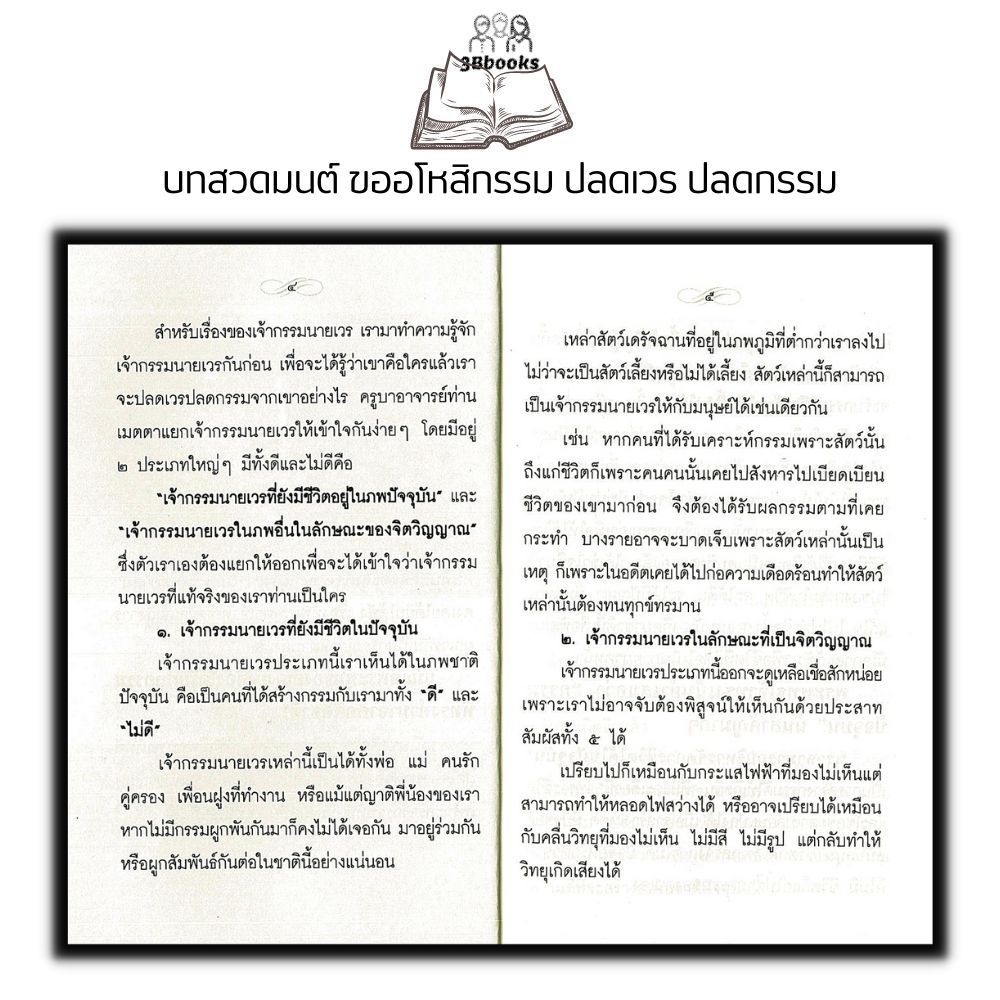 3Bbooks
บทสวดมนต์ ขออโหสิกรรม ปลดเวร ปลดกรรม
๔
สำหรับเรื่องของเจ้ากรรมนายเวร เรามาทำความรู้จัก
เจ้ากรรมนายเวรกันก่อน เพื่อจะได้รู้ว่าเขาคือใครแล้วเรา
จะปลดเวรปลดกรรมจากเขาอย่างไร ครูบาอาจารย์ท่าน
เมตตาแยกเจ้ากรรมนายเวรให้เข้าใจกันง่ายๆ โดยมีอยู่
๒ ประเภทใหญ่ๆ มีทั้งดีและไม่ดีคือ
"เจ้ากรรมนายเวรที่ยังมีชีวิตอยู่ในภพปัจจุบัน" และ
"เจ้ากรรมนายเวรในภพอื่นในลักษณะของจิตวิญญาณ"
ซึ่งตัวเราเองต้องแยกให้ออกเพื่อจะได้เข้าใจว่าเจ้ากรรม
นายเวรที่แท้จริงของเราท่านเป็นใคร
๑. เจ้ากรรมนายเวรที่ยังมีชีวิตในปัจจุบัน
เจ้ากรรมนายเวรประเภทนี้เราเห็นได้ในภพชาติ
ปัจจุบัน คือเป็นคนที่ได้สร้างกรรมกับเรามาทั้ง "ดี" และ
"ไม่ดี"
เจ้ากรรมนายเวรเหล่านี้เป็นได้ทั้งพ่อ แม่ คนรัก
คู่ครอง เพื่อนฝูงที่ทำงาน หรือแม้แต่ญาติพี่น้องของเรา
หากไม่มีกรรมผูกพันกันมาก็คงไม่ได้เจอกัน มาอยู่ร่วมกัน
หรือผูกสัมพันธ์กันต่อในชาตินี้อย่างแน่นอน
๕
เหล่าสัตว์เดรัจฉานที่อยู่ในภพภูมิที่ต่ำกว่าเราลงไป
ไม่ว่าจะเป็นสัตว์เลี้ยงหรือไม่ได้เลี้ยง สัตว์เหล่านี้ก็สามารถ
เป็นเจ้ากรรมนายเวรให้กับมนุษย์ได้เช่นเดียวกัน
เช่น หากคนที่ได้รับเคราะห์กรรมเพราะสัตว์นั้น
ถึงแก่ชีวิตก็เพราะคนคนนั้นเคยไปสังหารไปเบียดเบียน
ชีวิตของเขามาก่อน จึงต้องได้รับผลกรรมตามที่เคย
กระทำ บางรายอาจจะบาดเจ็บเพราะสัตว์เหล่านั้นเป็น
เหตุ ก็เพราะในอดีตเคยได้ไปก่อความเดือดร้อนทำให้สัตว์
เหล่านั้นต้องทนทุกข์ทรมาน
๒. เจ้ากรรมนายเวรในลักษณะที่เป็นจิตวิญญาณ
เจ้ากรรมนายเวรประเภทนี้ออกจะดูเหลือเชื่อสักหน่อย
เพราะเราไม่อาจจับต้องพิสูจน์ให้เห็นกันด้วยประสาท
สัมผัสทั้ง ๕ ได้
เปรียบไปก็เหมือนกับกระแสไฟฟ้าที่มองไม่เห็นแต่
สามารถทำให้หลอดไฟสว่างได้ หรืออาจเปรียบได้เหมือน
กับคลื่นวิทยุที่มองไม่เห็น ไม่มีสี ไม่มีรูป แต่กลับทำให้
วิทยุเกิดเสียงได้